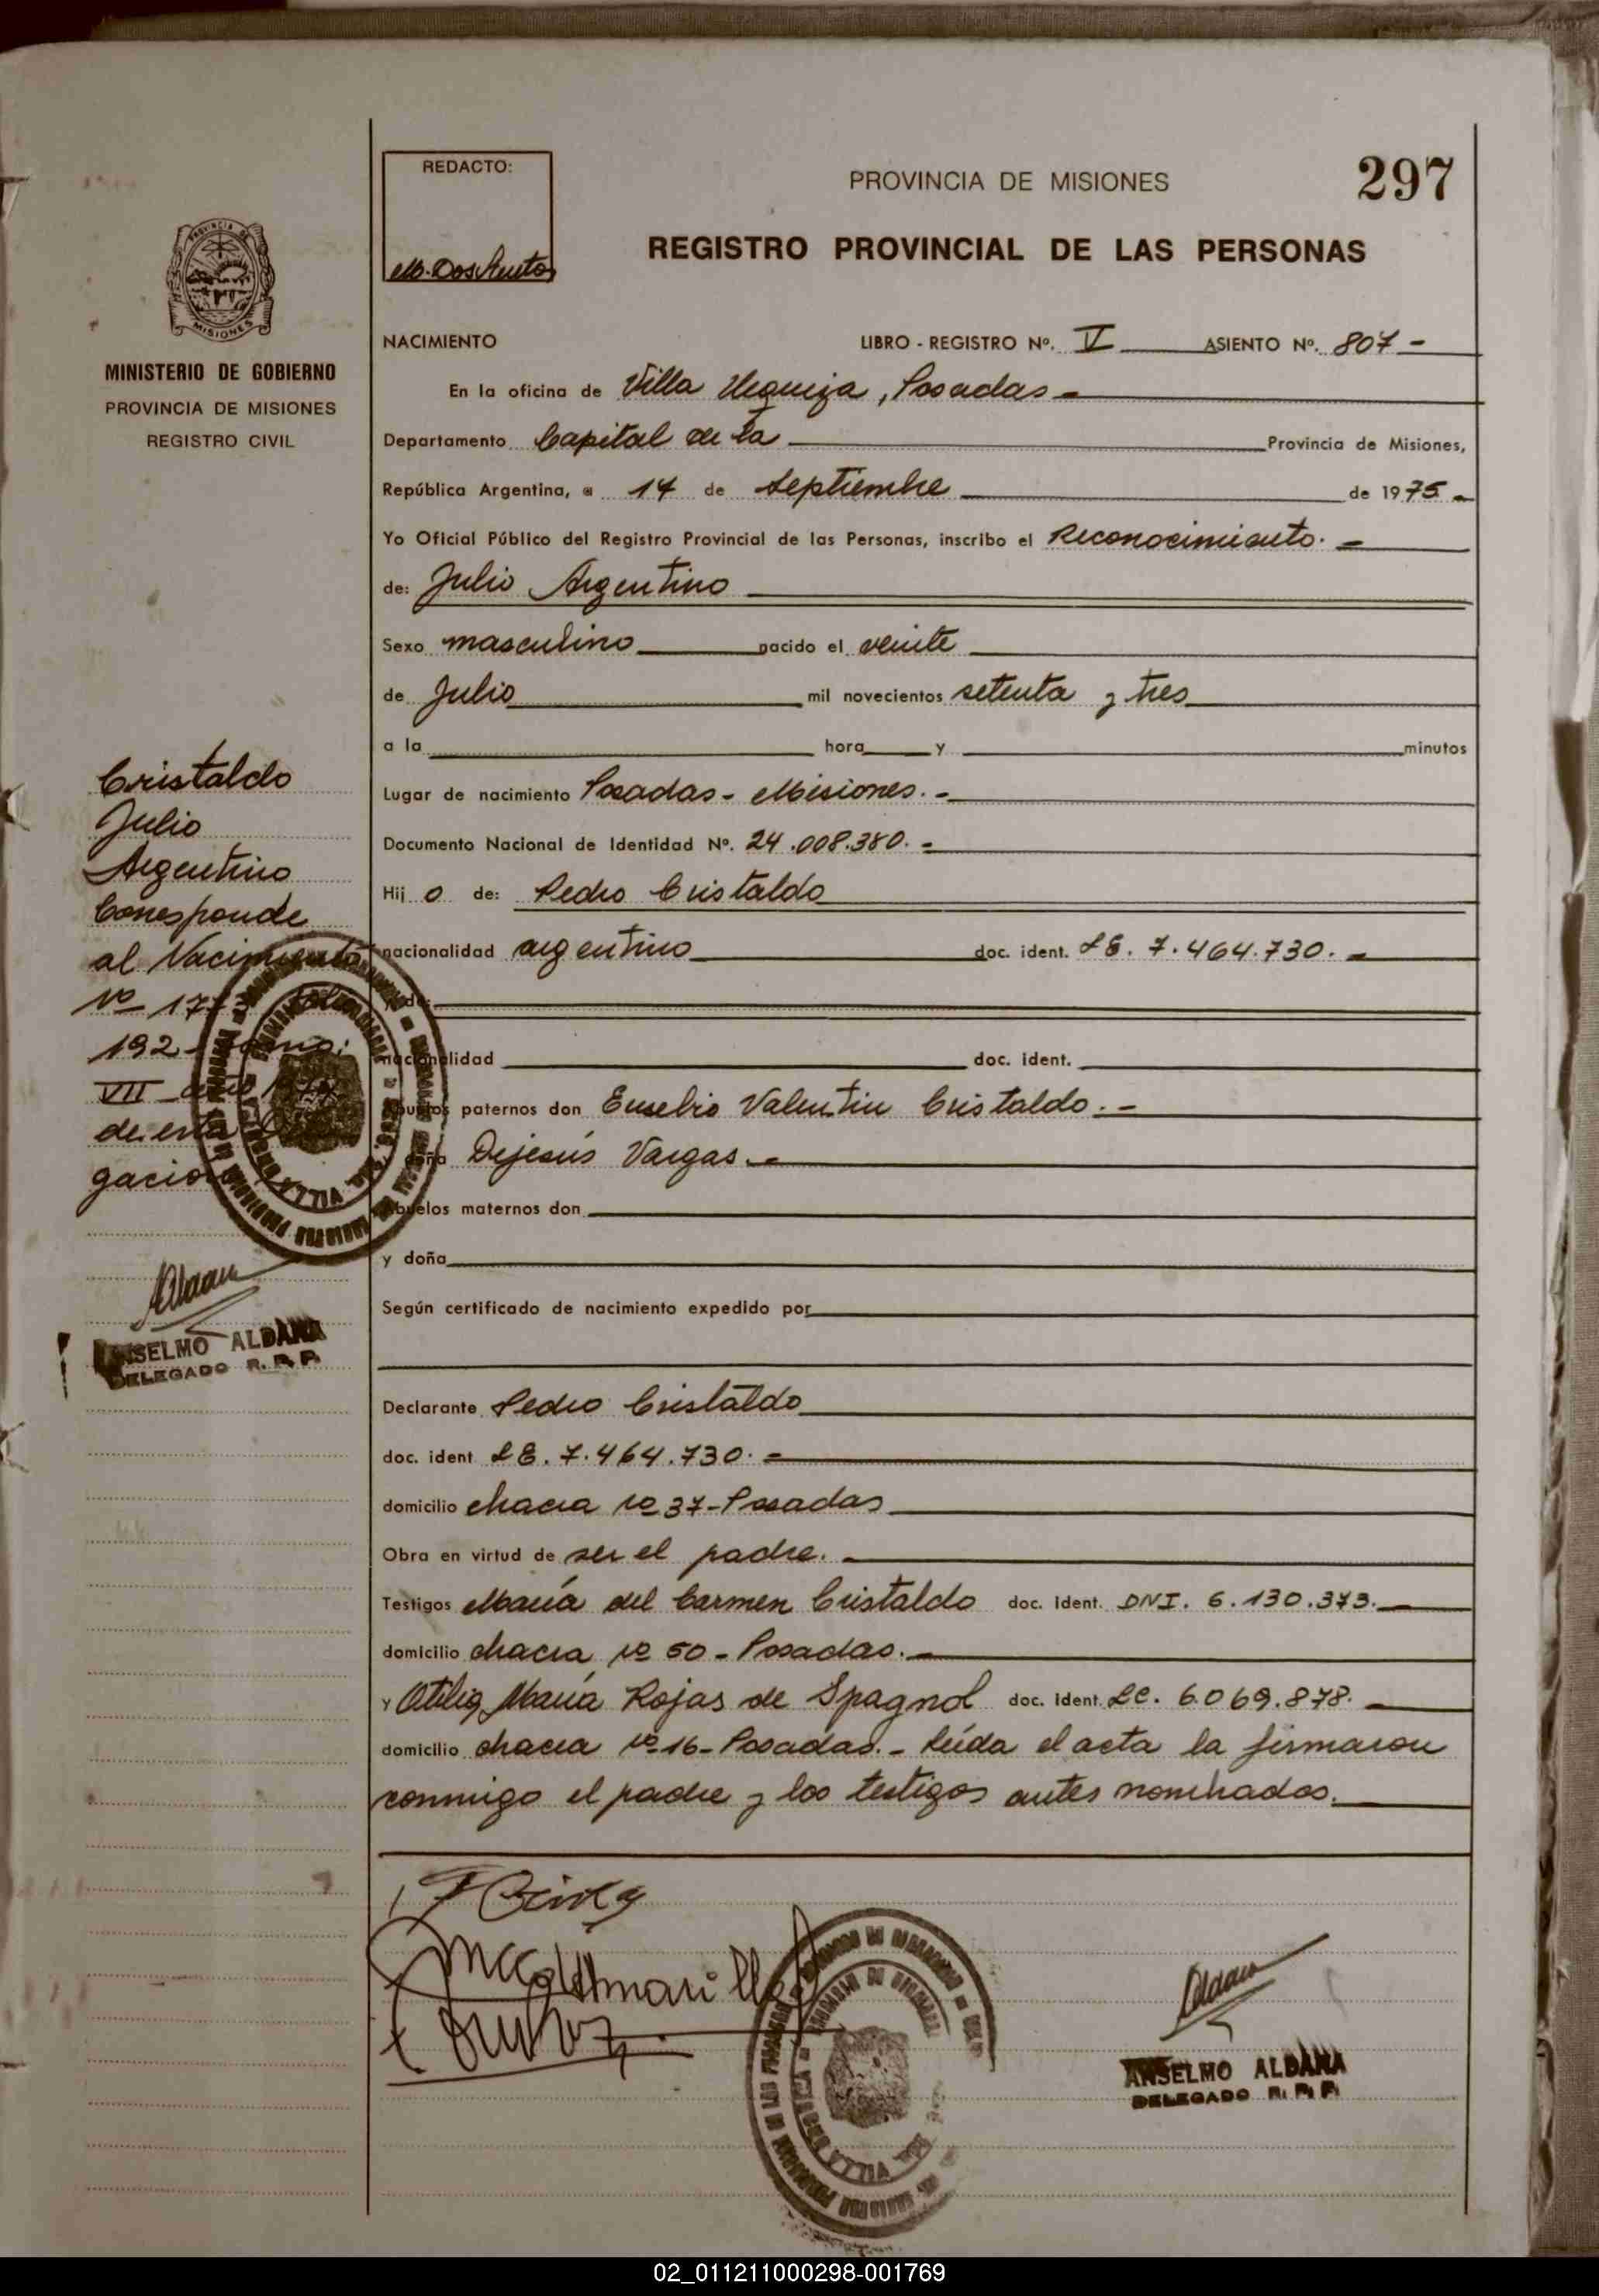 REDACTO:
M. Dos Santos
PROVINCIA DE MISIONES
297
REGISTRO PROVINCIAL DE LAS PERSONAS
MINISTERIO DE GOBIERNO
PROVINCIA DE MISIONES
REGISTRO CIVIL
NACIMIENTO LIBRO - REGISTRO Nº. V ASIENTO Nº. 807 -
En la oficina de Villa Urquiza, Posadas -
Departamento Capital de la Provincia de Misiones,
República Argentina, a 14 de Septiembre de 1975 -
Yo Oficial Público del Registro Provincial de las Personas, inscribo el Reconocimiento. -
de: Julio Argentino
Sexo masculino nacido el veinte
de Julio mil novecientos setenta y tres
a la hora y minutos
Lugar de nacimiento Posadas - Misiones. -
Documento Nacional de Identidad Nº. 24.008.380. -
Hij o de: Pedro Cristaldo
nacionalidad argentino doc. ident. LE. 7.464.730. -
y de:
nacionalidad doc. ident.
Abuelos paternos don Eusebio Valentin Cristaldo. -
y doña Dejesús Vargas. -
Abuelos maternos don
y doña
Según certificado de nacimiento expedido por
Declarante Pedro Cristaldo
doc. ident LE. 7.464.730. -
domicilio chacra nº 37 - Posadas
Obra en virtud de ser el padre. -
Testigos María del Carmen Cristaldo doc. ident. DNI. 6.130.373. -
domicilio chacra nº 50 - Posadas. -
y Otilia María Rojas de Spagnol doc. ident. LC. 6.069.878. -
domicilio chacra nº 16 - Posadas. - Leída el acta la firmaron
conmigo el padre y los testigos antes nombrados.
Cristaldo
Julio
Argentino
Corresponde
al Nacimiento
Nº
192
VII
de esta
ANSELMO ALDANA
DELEGADO R. P. P.
ANSELMO ALDANA
DELEGADO R. P. P.
02_011211000298-001769